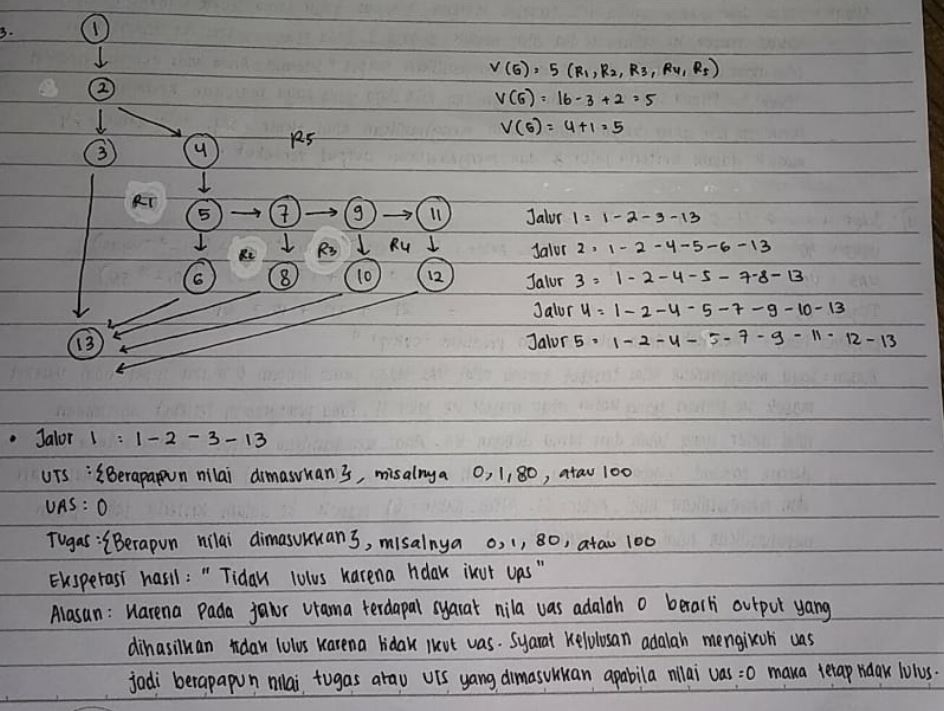 3.
1
2
3
4
R5
R1
5
7
9
11
R2
R3
R4
6
8
10
12
13
V(G) = 5 (R1, R2, R3, R4, R5)
V(G) = 16 - 3 + 2 = 5
V(G) = 4 + 1 = 5
Jalur 1 = 1 - 2 - 3 - 13
Jalur 2 = 1 - 2 - 4 - 5 - 6 - 13
Jalur 3 = 1 - 2 - 4 - 5 - 7 - 8 - 13
Jalur 4 = 1 - 2 - 4 - 5 - 7 - 9 - 10 - 13
Jalur 5 = 1 - 2 - 4 - 5 - 7 - 9 - 11 - 12 - 13
• Jalur 1 : 1 - 2 - 3 - 13
UTS : {Berapapun nilai dimasukan}, misalnya 0, 1, 80, atau 100
UAS : 0
Tugas : {Berapun nilai dimasukkan}, misalnya 0, 1, 80, atau 100
Ekspetasi hasil : " Tidak lulus karena tidak ikut uas "
Alasan : Karena pada jalur utama terdapat syarat nila uas adalah 0 berarti output yang
dihasilkan tidak lulus karena tidak ikut uas. Syarat kelulusan adalah mengikuti uas
jadi berapapun nilai tugas atau UTS yang dimasukkan apabila nilai uas = 0 maka tetap tidak lulus.